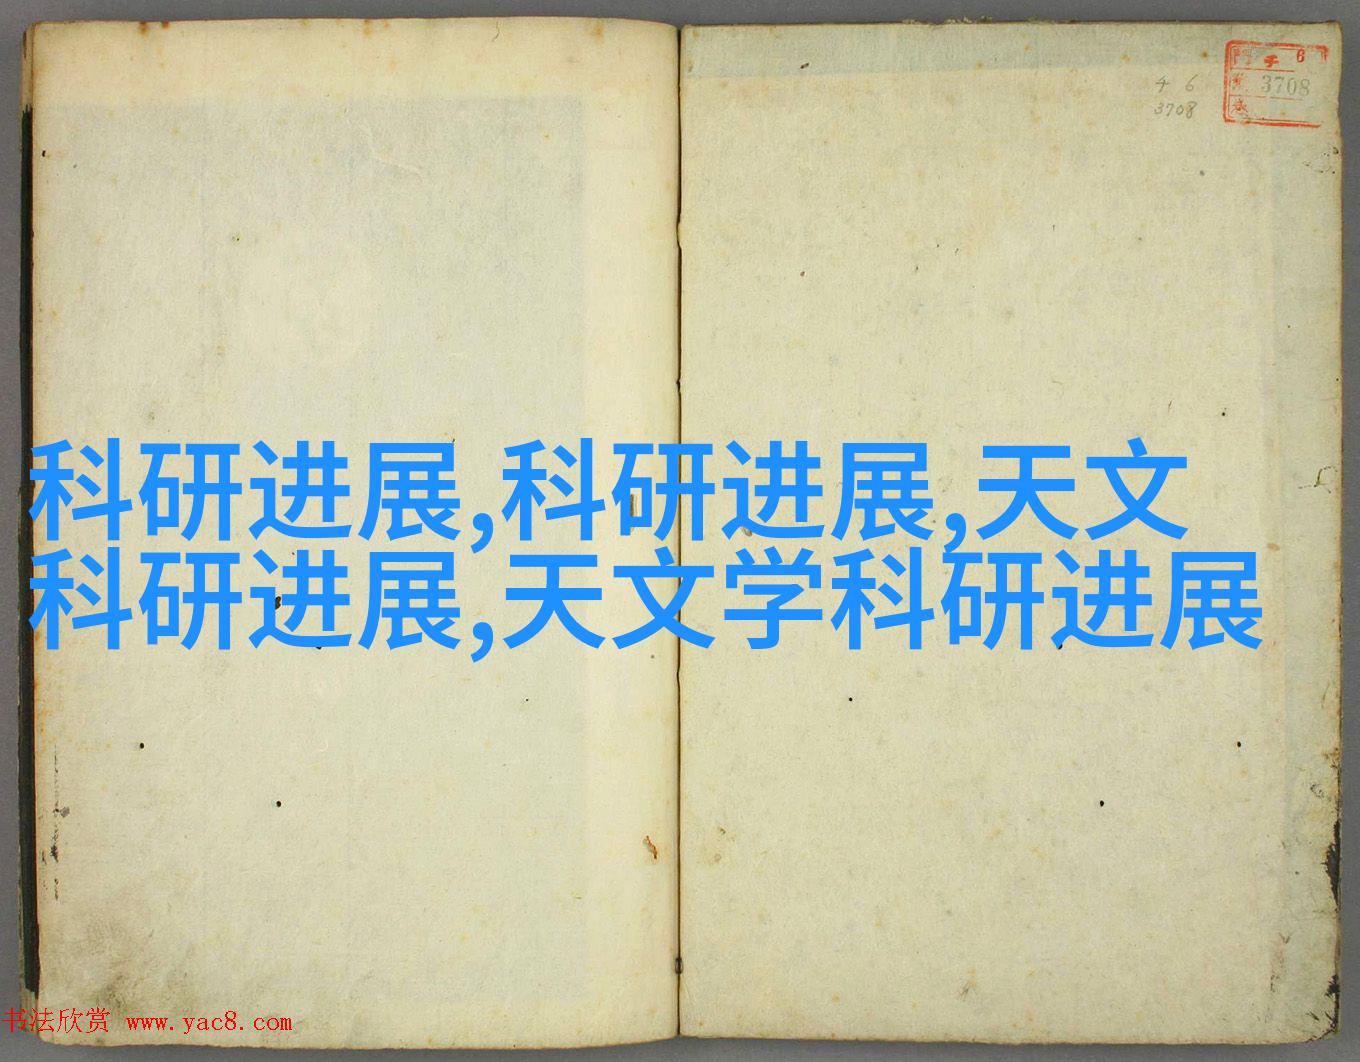 チ 6
3708
4 6
3708
科研进展,科研进展,天文
科研进展,天文学科研进展
书法欣赏 www.yac8.com